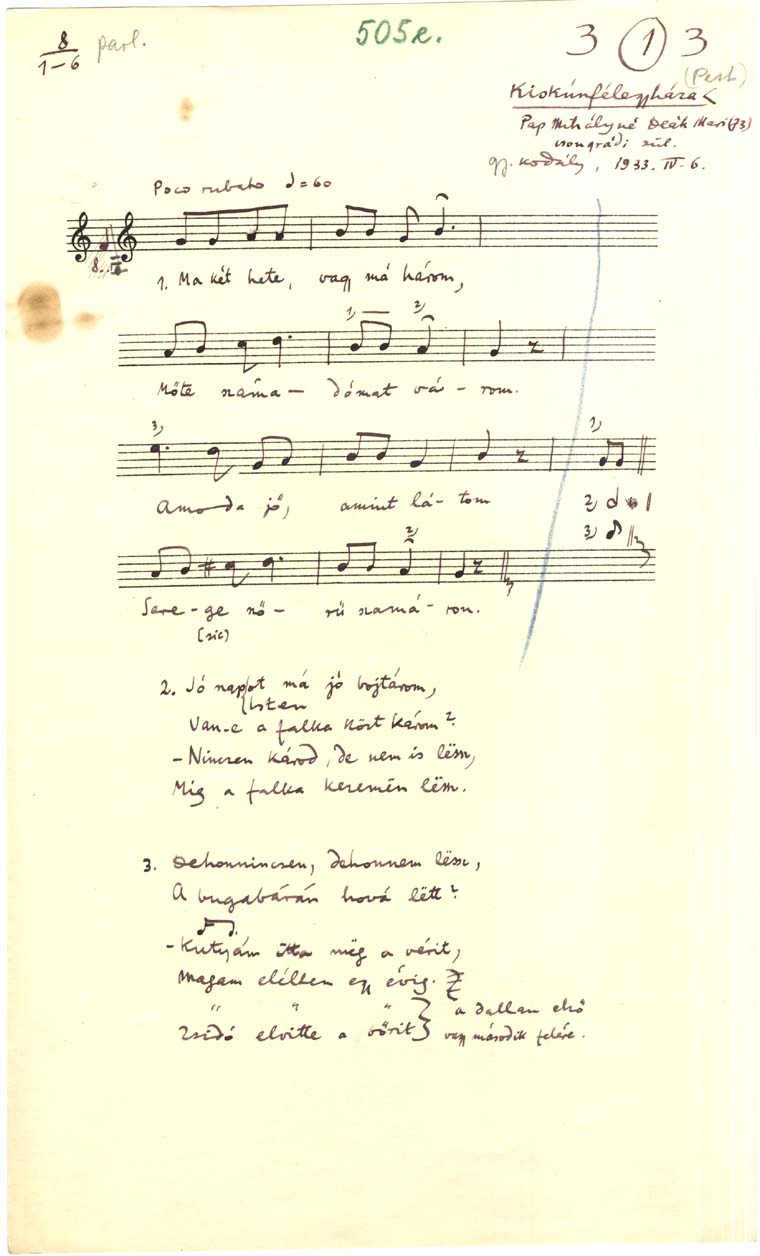 8
1-6 parl.
505e.
3 1 3
(Pest)
Kiskúnfélegyháza
Pap Mihályné Deák Mari (73)
csongrádi szül.
gy. Kodály, 1933. IV-6.
Poco rubato = 60
8..
1. Ma két hete, vagy má három,
1) 2)
Mőte szama- dómat vá- rom.
3) 1)
Amo-da jő, amint lá- tom
2)
3)
2)
Sere-ge ső- rü szamá- ron.
(sic)
2. Jó napot má jó bojtárom,
Isten
Van-e a falka közt károm?
- Ninczen károd, de nem is lëssz,
Mig a falka kezemën lëssz.
3. Dehonnincsen, dehonnem lëssz,
A bugabárán hová lëtt?
- Kutyám itta mëg a vérit,
Magam eléltem egy évig.
" " " a dallam első
Zsidó elvitte a bőrit vagy második felére.